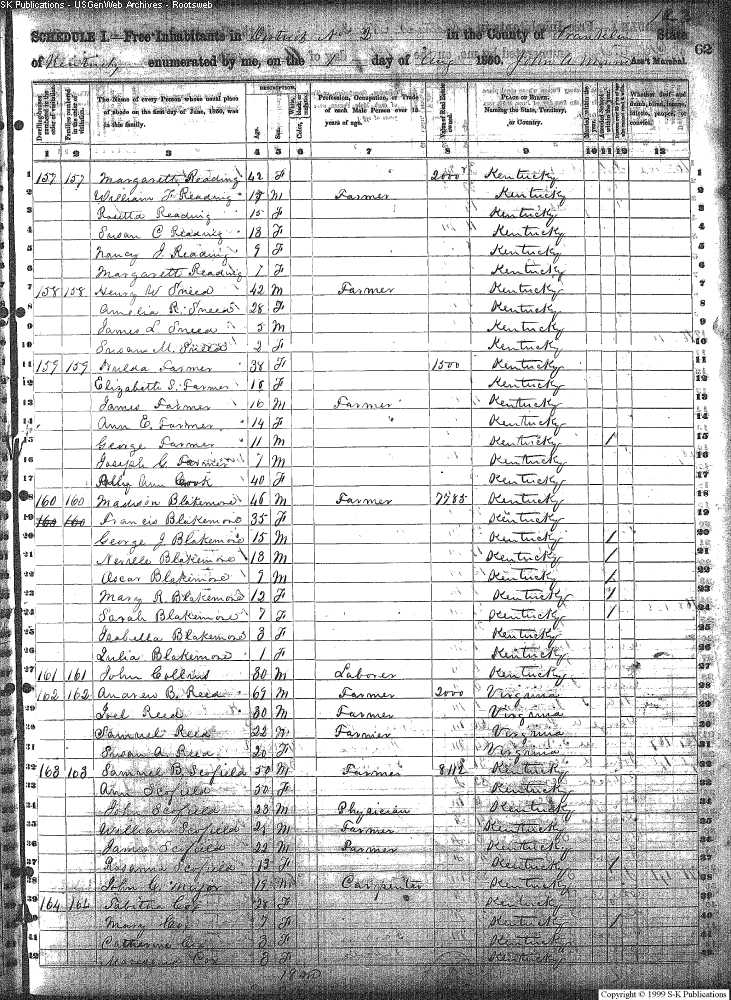 SK Publications - USGenWeb Archives - Rootsweb
SCHEDULE I.—Free Inhabitants in District No 2 in the County of Franklin State
of Kentucky enumerated by me, on the 1 day of Aug 1850. John A Ass't Marshal.
62
Dwelling-houses numbered in the order of visitation. Families numbered in the order of visitation. The Name of every Person whose usual place of abode on the first day of June, 1850, was in this family. DESCRIPTION. Age. Sex. Color, White, black, or mulatto. Profession, Occupation, or Trade of each Male Person over 15 years of age. Value of Real Estate owned. PLACE OF BIRTH. Naming the State, Territory, or Country. Married within the year. Whether deaf and dumb, blind, insane, idiotic, pauper, or convict.
1 2 3 4 5 6 7 8 9 10 11 12
1 157 157 Margarett Reading 42 F 2000 Kentucky 1
2 William F Reading 17 M Farmer Kentucky 2
3 Rosetta Reading 15 F Kentucky 3
4 Susan C Reading 13 F Kentucky 4
5 Nancy J Reading 9 F Kentucky 5
6 Margarett Reading 7 F Kentucky 6
7 158 158 Henry W Sneed 42 M Farmer Kentucky 7
8 Amelia R. Sneed 28 F Kentucky 8
9 James L Sneed 5 M Kentucky 9
10 Susan M. Sneed 2 F Kentucky 10
11 159 159 Hulda Farmer 38 F 1500 Kentucky 11
12 Elizabeth S. Farmer 18 F Kentucky 12
13 James Farmer 16 M Farmer Kentucky 13
14 Ann E. Farmer 14 F Kentucky 14
15 George Farmer 11 M Kentucky / 15
16 Joseph C Farmer 7 M Kentucky 16
17 Polly Ann Cook 40 F Kentucky 17
18 160 160 Madison Blakemore 46 M Farmer 7785 Kentucky 18
19 160 160 Francis Blakemore 35 F Kentucky 19
20 George J Blakemore 15 M Kentucky / 20
21 Neville Blakemore 13 M Kentucky / 21
22 Oscar Blakemore 9 M Kentucky / 22
23 Mary R Blakemore 12 F Kentucky / 23
24 Sarah Blakemore 7 F Kentucky / 24
25 Isabella Blakemore 3 F Kentucky 25
26 Julia Blakemore 1 F Kentucky 26
27 161 161 John Collins 30 M Laborer Kentucky 27
28 162 162 Andrew B. Reed 69 M Farmer 2000 Virginia 28
29 Joel Reed 30 M Farmer Virginia 29
30 Samuel Reed 22 M Farmer Virginia 30
31 Susan A. Reed 20 F Virginia 31
32 163 163 Samuel B. Scofield 50 M Farmer 8112 Kentucky 32
33 Ann Scofield 50 F Kentucky 33
34 John Scofield 23 M Physician Kentucky 34
35 William Scofield 21 M Farmer Kentucky 35
36 James Scofield 22 M Farmer Kentucky 36
37 Rosanna Scofield 13 F Kentucky / 37
38 John C. Major 19 M Carpenter Kentucky 38
39 164 164 Tabitha Cox 28 F Kentucky 39
40 Mary Cox 7 F Kentucky / 40
41 Catherine Cox 3 F Kentucky 41
42 Cox 3 F Kentucky 42
Copyright © 1999 S-K Publications